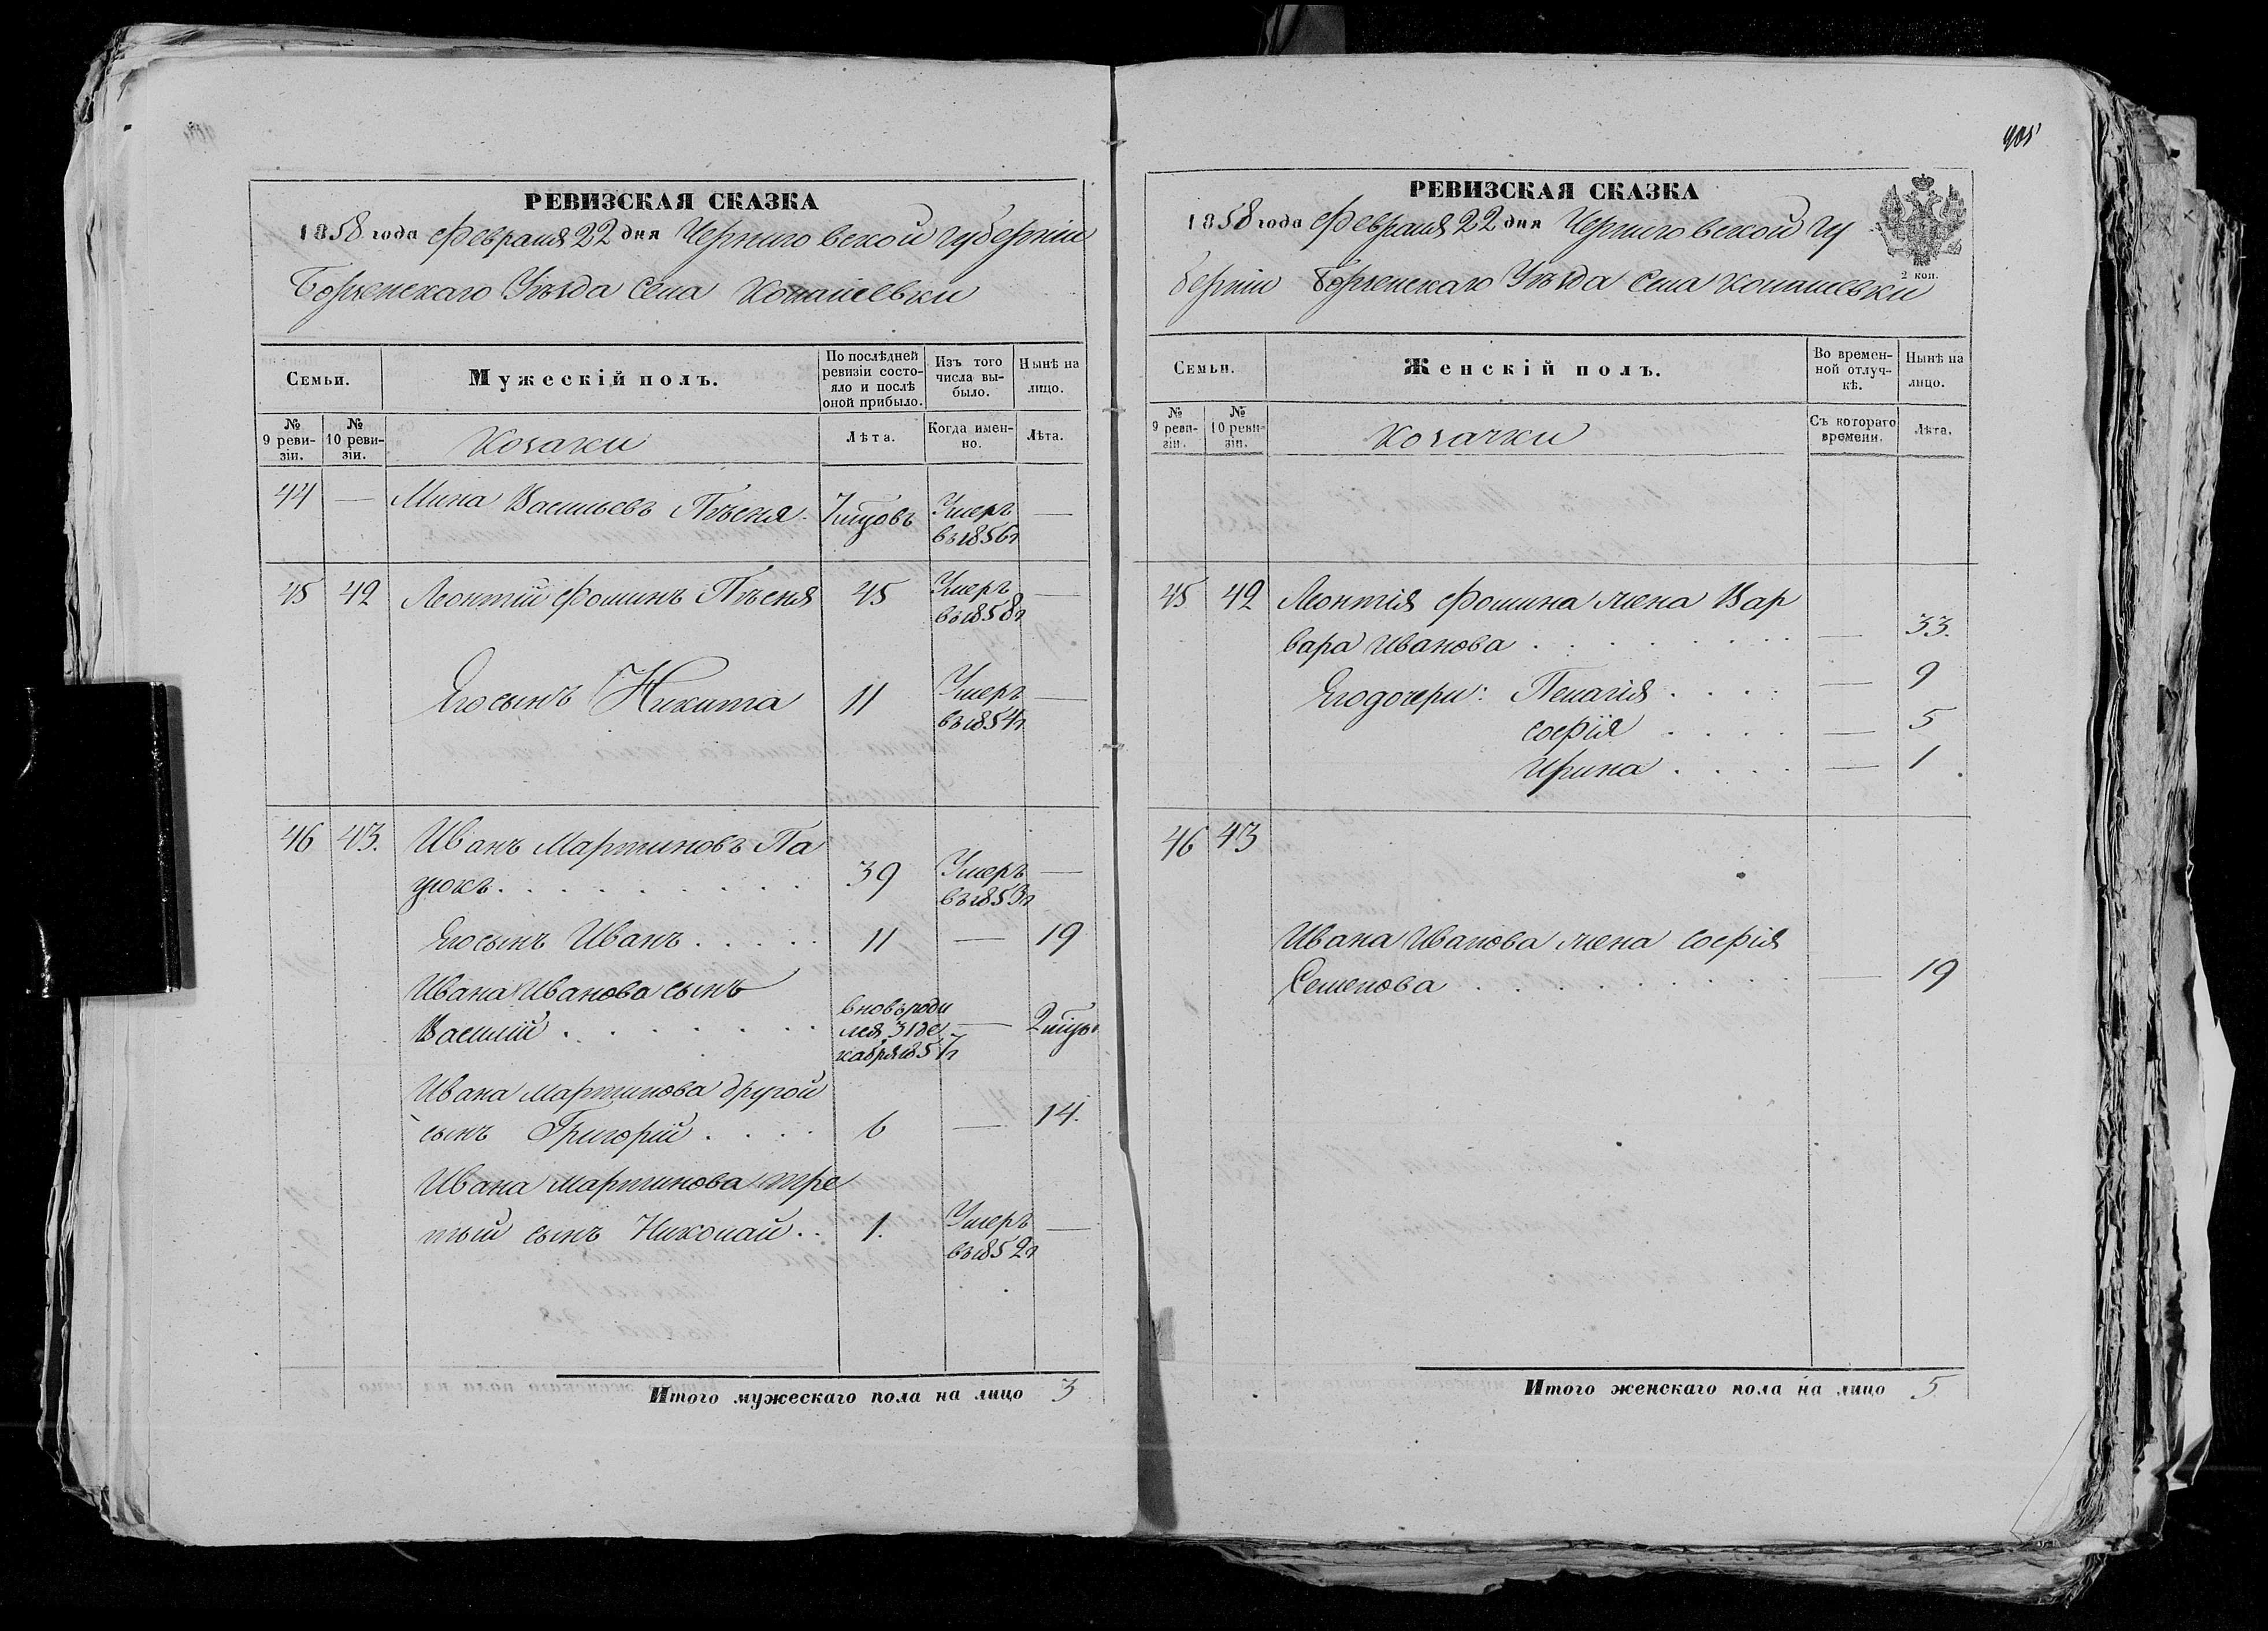 405
РЕВИЗСКАЯ СКАЗКА
1858 года Февраля 22 дня Черниговской губерніи
Борзенскаго Уѣзда Села Копашевки
Семьи.
Мужескій полъ.
По послѣдней ревизіи состояло и послѣ оной прибыло.
Изъ того числа выбыло.
Нынѣ на лицо.
№ 9 ревизіи.
№ 10 ревизіи.
Козаки
Лѣта.
Когда именно.
Лѣта.
44 — Мина Васильевъ Пѣсня. 7 мцовъ Умеръ —
въ 1856 г
45 42 Леонтій Фоминъ Пѣсня 45 Умеръ —
въ 1858 г
Его сынъ Никита 11 Умеръ —
въ 1854 г
46 43. Иванъ Мартиновъ Па
цюкъ. 39 Умеръ —
въ 1853 г
Его сынъ Иванъ 11 — 19
Ивана Иванова сынъ
Василій вновь роди
лся 31 де — 2 мцы
кабря 1857 г
Ивана Мартинова другой
сынъ Григорій 6 — 14.
Ивана Мартинова тре
тый сынъ Николай 1. Умеръ —
въ 1852 г
Итого мужескаго пола на лицо 3
РЕВИЗСКАЯ СКАЗКА
1858 года Февраля 22 дня Черниговской гу
берніи Борзенскаго Уѣзда Села Копашевки
2 коп.
Семьи.
Женскій полъ.
Во временной отлучкѣ.
Нынѣ на лицо.
№ 9 ревизіи.
№ 10 ревизіи.
Козачки
Съ котораго времени.
Лѣта.
45 42 Леонтія Фомина жена Вар
вара Иванова — 33.
Его дочери: Пелагія — 9
Софія — 5
Ирина — 1
46 43
Ивана Иванова жена Софія
Семенова — 19
Итого женскаго пола на лицо 5